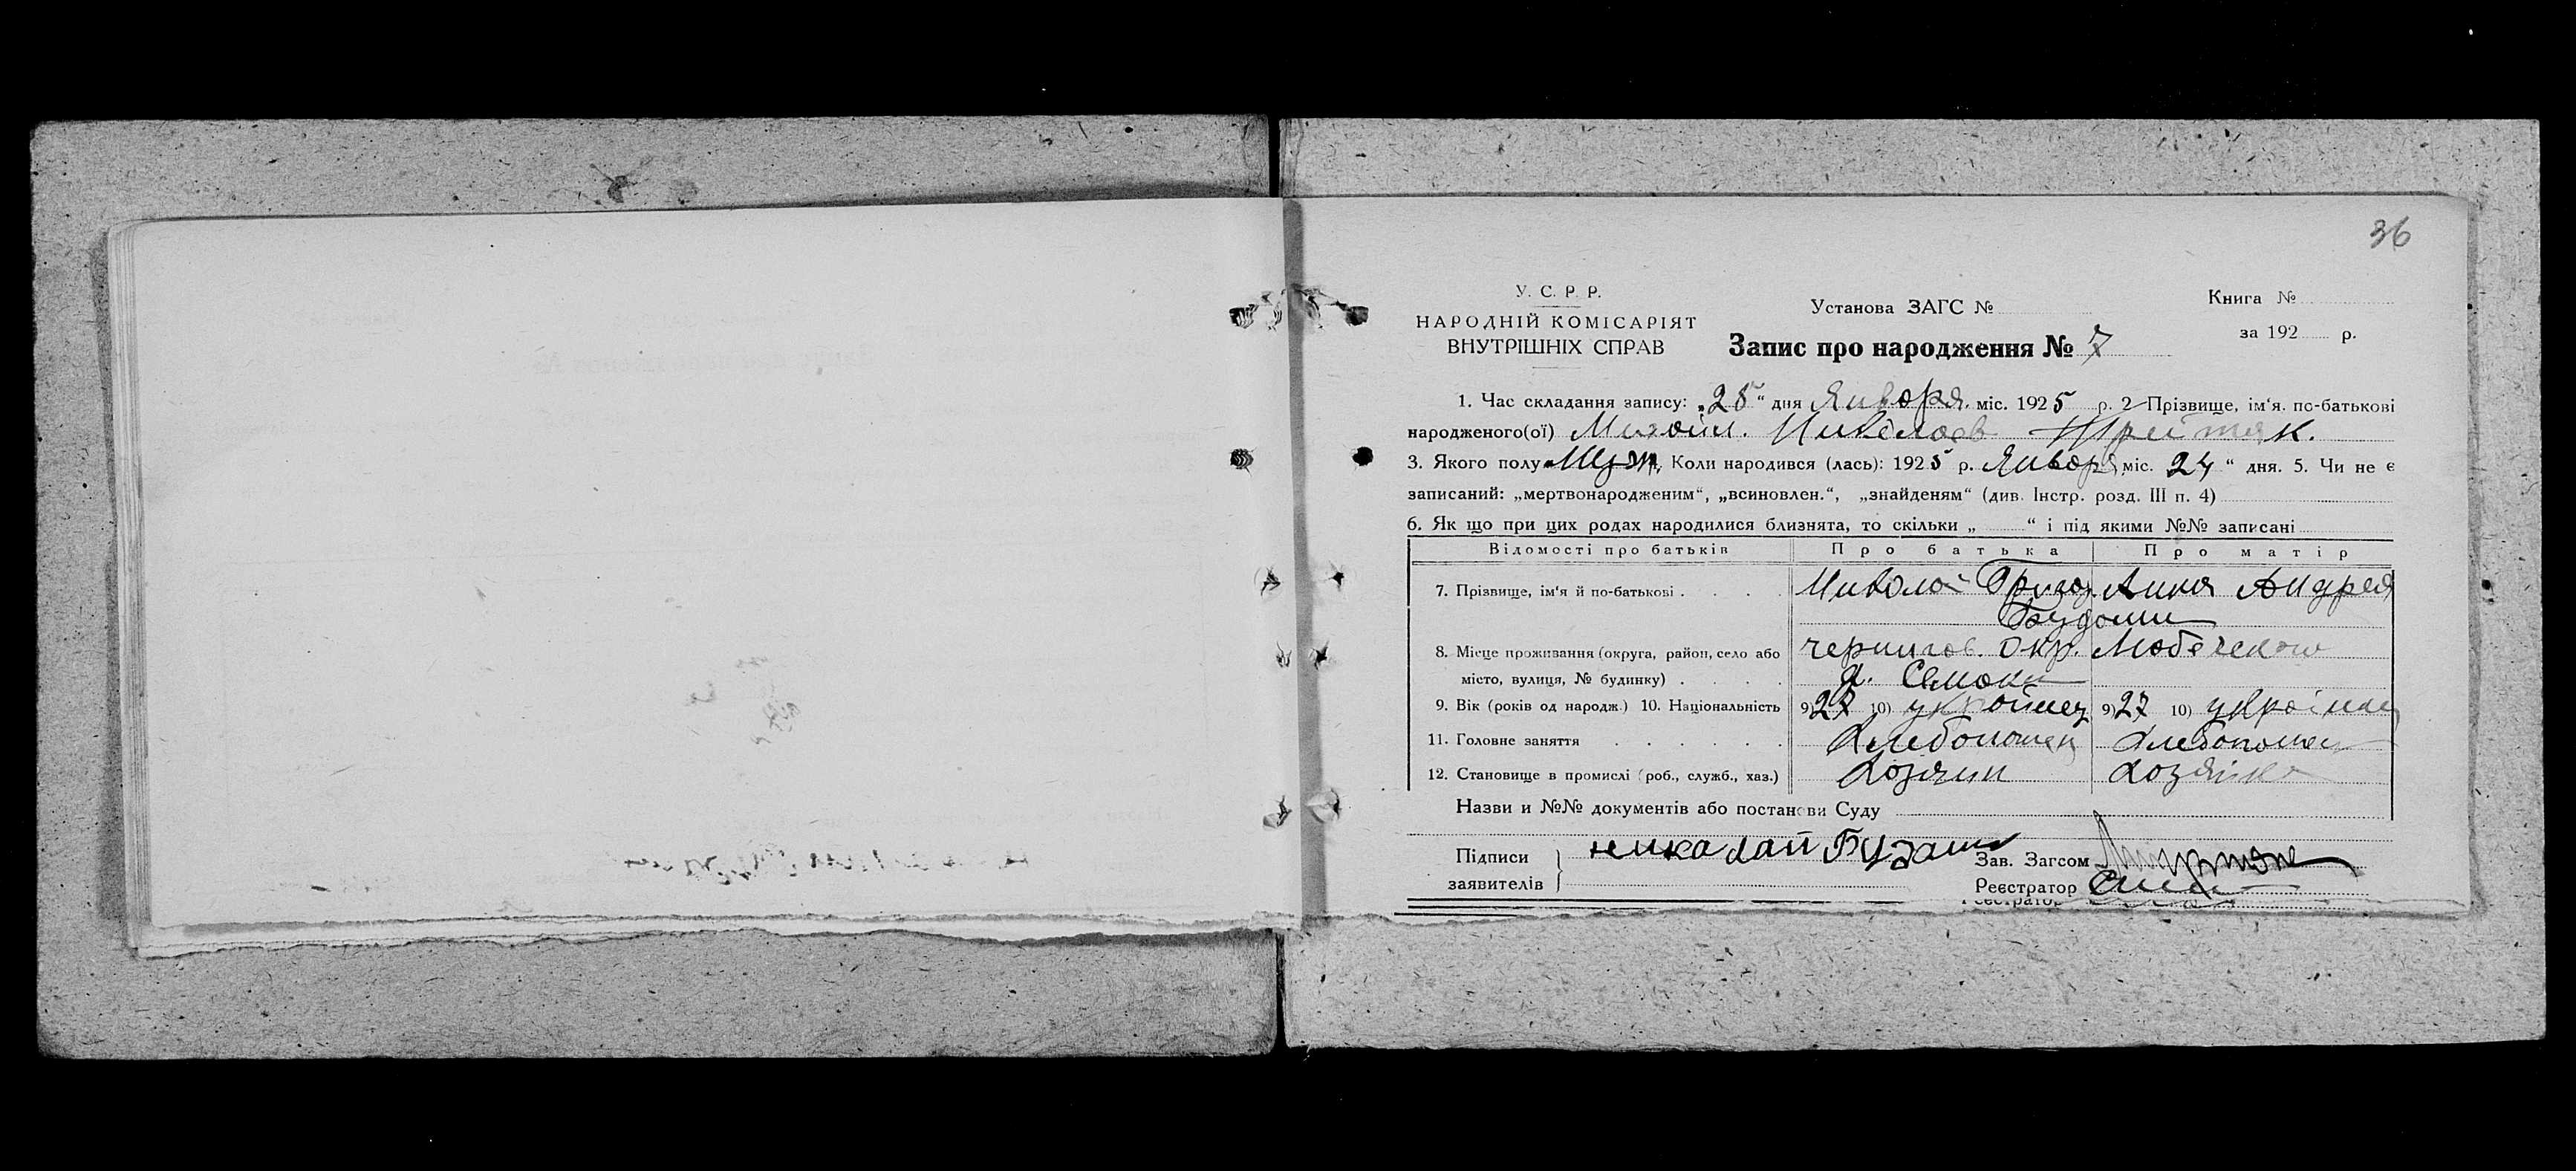 36
У. С. Р. Р.
НАРОДНІЙ КОМІСАРІЯТ
ВНУТРІШНІХ СПРАВ
Установа ЗАГС №
Запис про народження № 7
Книга №
за 192 р.
1. Час складання запису: „25“ дня Января міс. 1925 р. 2 Прізвище, ім‘я. по-батькові
народженого(ої) Михаил. Николаев
3. Якого полу Муж. Коли народився (лась): 1925 р. Января міс. 24 “ дня. 5. Чи не є
записаний: „мертвонародженим“, „всиновлен.“, „знайденям“ (див. Інстр. розд. III п. 4)
6. Як що при цих родах народилися близнята, то скільки „ “ і під якими №№ записані
Відомості про батьків Про батька Про матір
7. Прізвище, ім‘я й по-батькові . . . . Николай Григор. Анна Андрея
8. Місце проживання (округа, район, село або Чернигов. Окр. Любечского
місто, вулиця, № будинку) . . . .
9. Вік (років од народж.) 10. Національність 9) 27 10) украинец 9) 27 10)
11. Головне заняття . . . . . . Хлебопашец Хлебопашец
12. Становище в промислі (роб., служб., хаз.) Хозяин Хозяйка
Назви и №№ документів або постанови Суду
Підписи
заявителів
Зав. Загсом
Реєстратор
Реєстратор